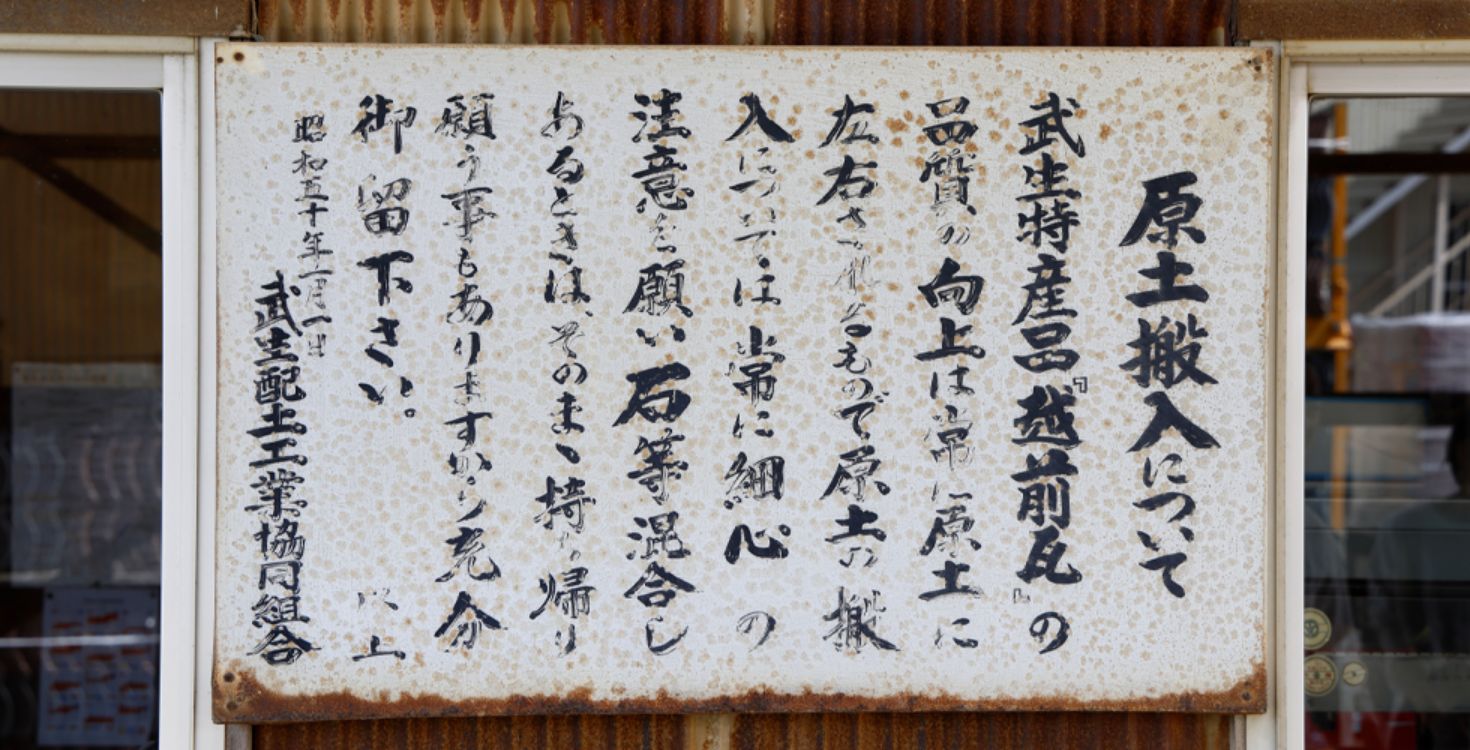 原土搬入について
武生特産品『越前瓦』の
品質の向上は常に原土に
左右されるもので原土の搬
入については常に細心の
注意を願い石等混合し
あるときは、そのまゝ持ち帰り
願う事もありますから充分
御留下さい。以上
昭和五十年一月一日
武生配土工業協同組合